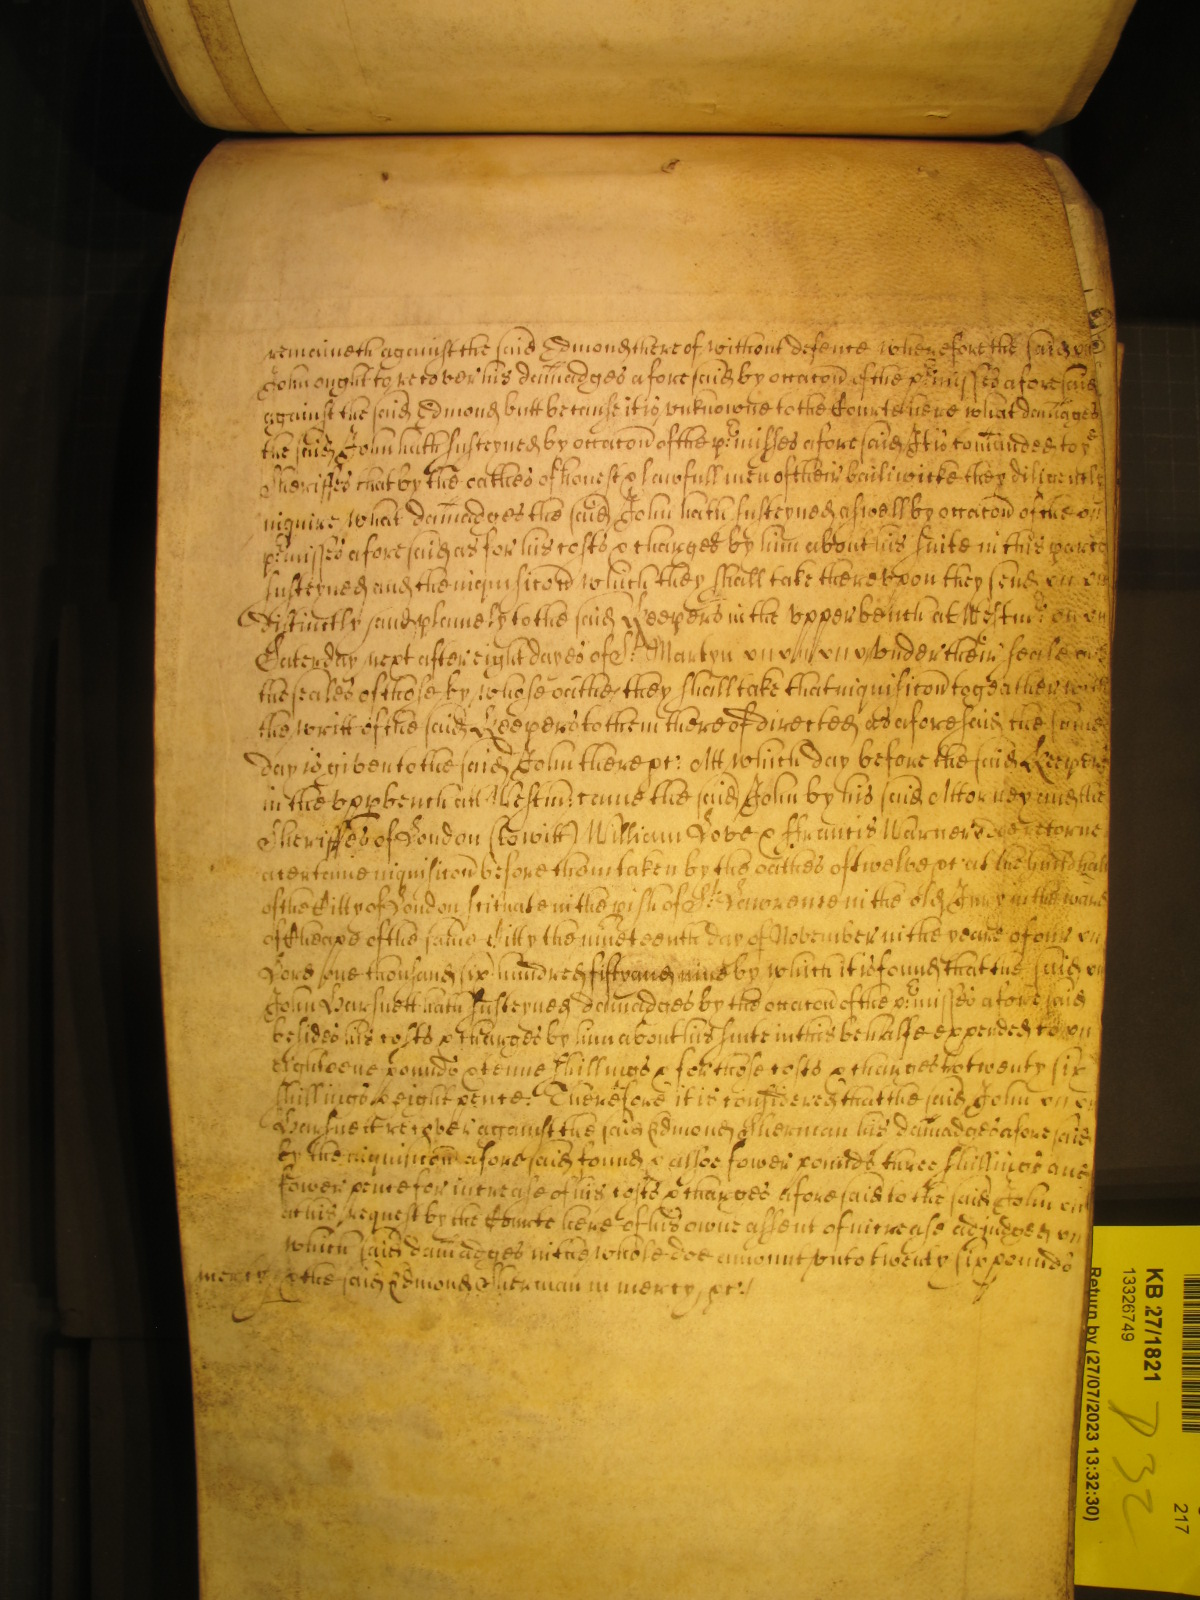 remaineth against the said Edmond thereof without defence wherefore the said
John ought to recover his dam̄adges aforesaid by occac̄on of the p̱misses aforesaid
against the said Edmond butt because it is unknowne to the Courte here what dam̄ages
the said John hath susteyned by occac̄on of the p̱misses aforesaid It is com̄anded to yᵉ
Sheriffes that by the oathes of honest & lawfull men of their bailiwicke they diligently
inquire what dam̄adges the said John hath susteyned aswell by occac̄on of the
p̱misses aforesaid as for his costs & charges by him about his suite in this parte
susteyned and the inquisic̄on which they shall take thereupon they send
distinctly and plainely to the said Keepers in the upper bench at Westmr: on
Saterday next after eight dayes of St: Martyn under their seale and
the seales of those by whose oathe they shall take that inquisic̄on togeather with
the writt of the said Keepers to them thereof directed as aforesaid the same
day is given to the said John there &c: Att which day before the said Keepers
in the upp̱ bench att Westmr: came the said John by his said Attorney and the
Sheriffes of London (to witt) William Love & Francis Warner doe retorne
a certaine inquisic̄on before them taken by the oathes of twelve &c: at the Guildhall
of the Citty of London scituate in the p̱ish of St: Lawrence in the old Jury in the ward
of Cheape of the same Citty the nineteenth day of November in the yeare of our
Lord one thousand six hundred fifty and nine by which it is found that the said
John Harsnett hath susteyned dam̄adges by the occac̄on of the p̱misses aforesaid
besides his costs & charges by him about his suite in this behalfe expended to
eighteene pounds & tenne shillings & for those costs & charges to twenty six
shillings & eight pence. Therefore it is considered that the said John
Harsnett recover against the said Edmond Sherman his dam̄adges aforesaid
by the inquisic̄on aforesaid found & alsoe fower pounds three shillings and
fower pence for increase of his costs & charges aforesaid to the said John
at his request by the Courte here of his owne assent of increase adjudged
which said dam̄adges in the whole doe amount unto twenty six pounds
mercy & the said Edmond Sherman in mercy, &c:/
KB 27/1821
13326749
Return by (27/07/2023 13:32:30)
217
P 32